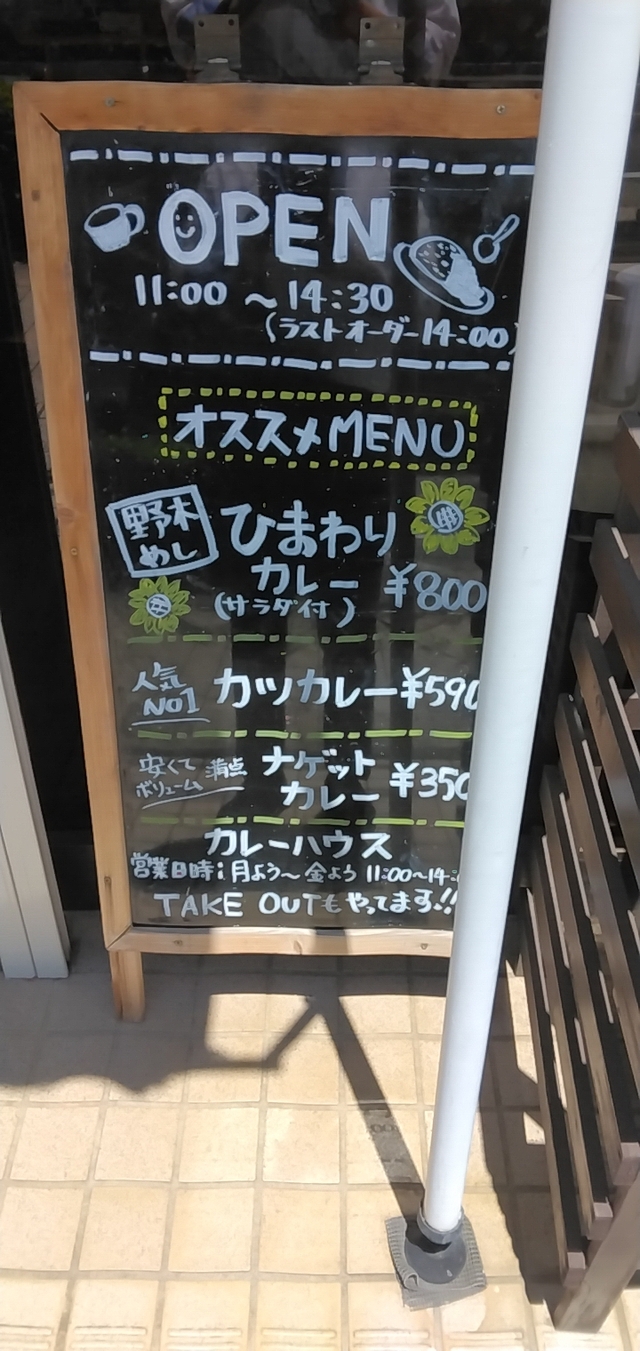 OPEN
11:00 ～14:30
(ラストオーダー14:00)
オススメMENU
野木
めし
ひまわり
カレー ¥800
(サラダ付)
人気
NO1
カツカレー¥590
安くて
ボリューム 満点
ナゲット
カレー ¥350
カレーハウス
営業日時:月よう～金よう 11:00～14:
TAKE OUTもやってます!!